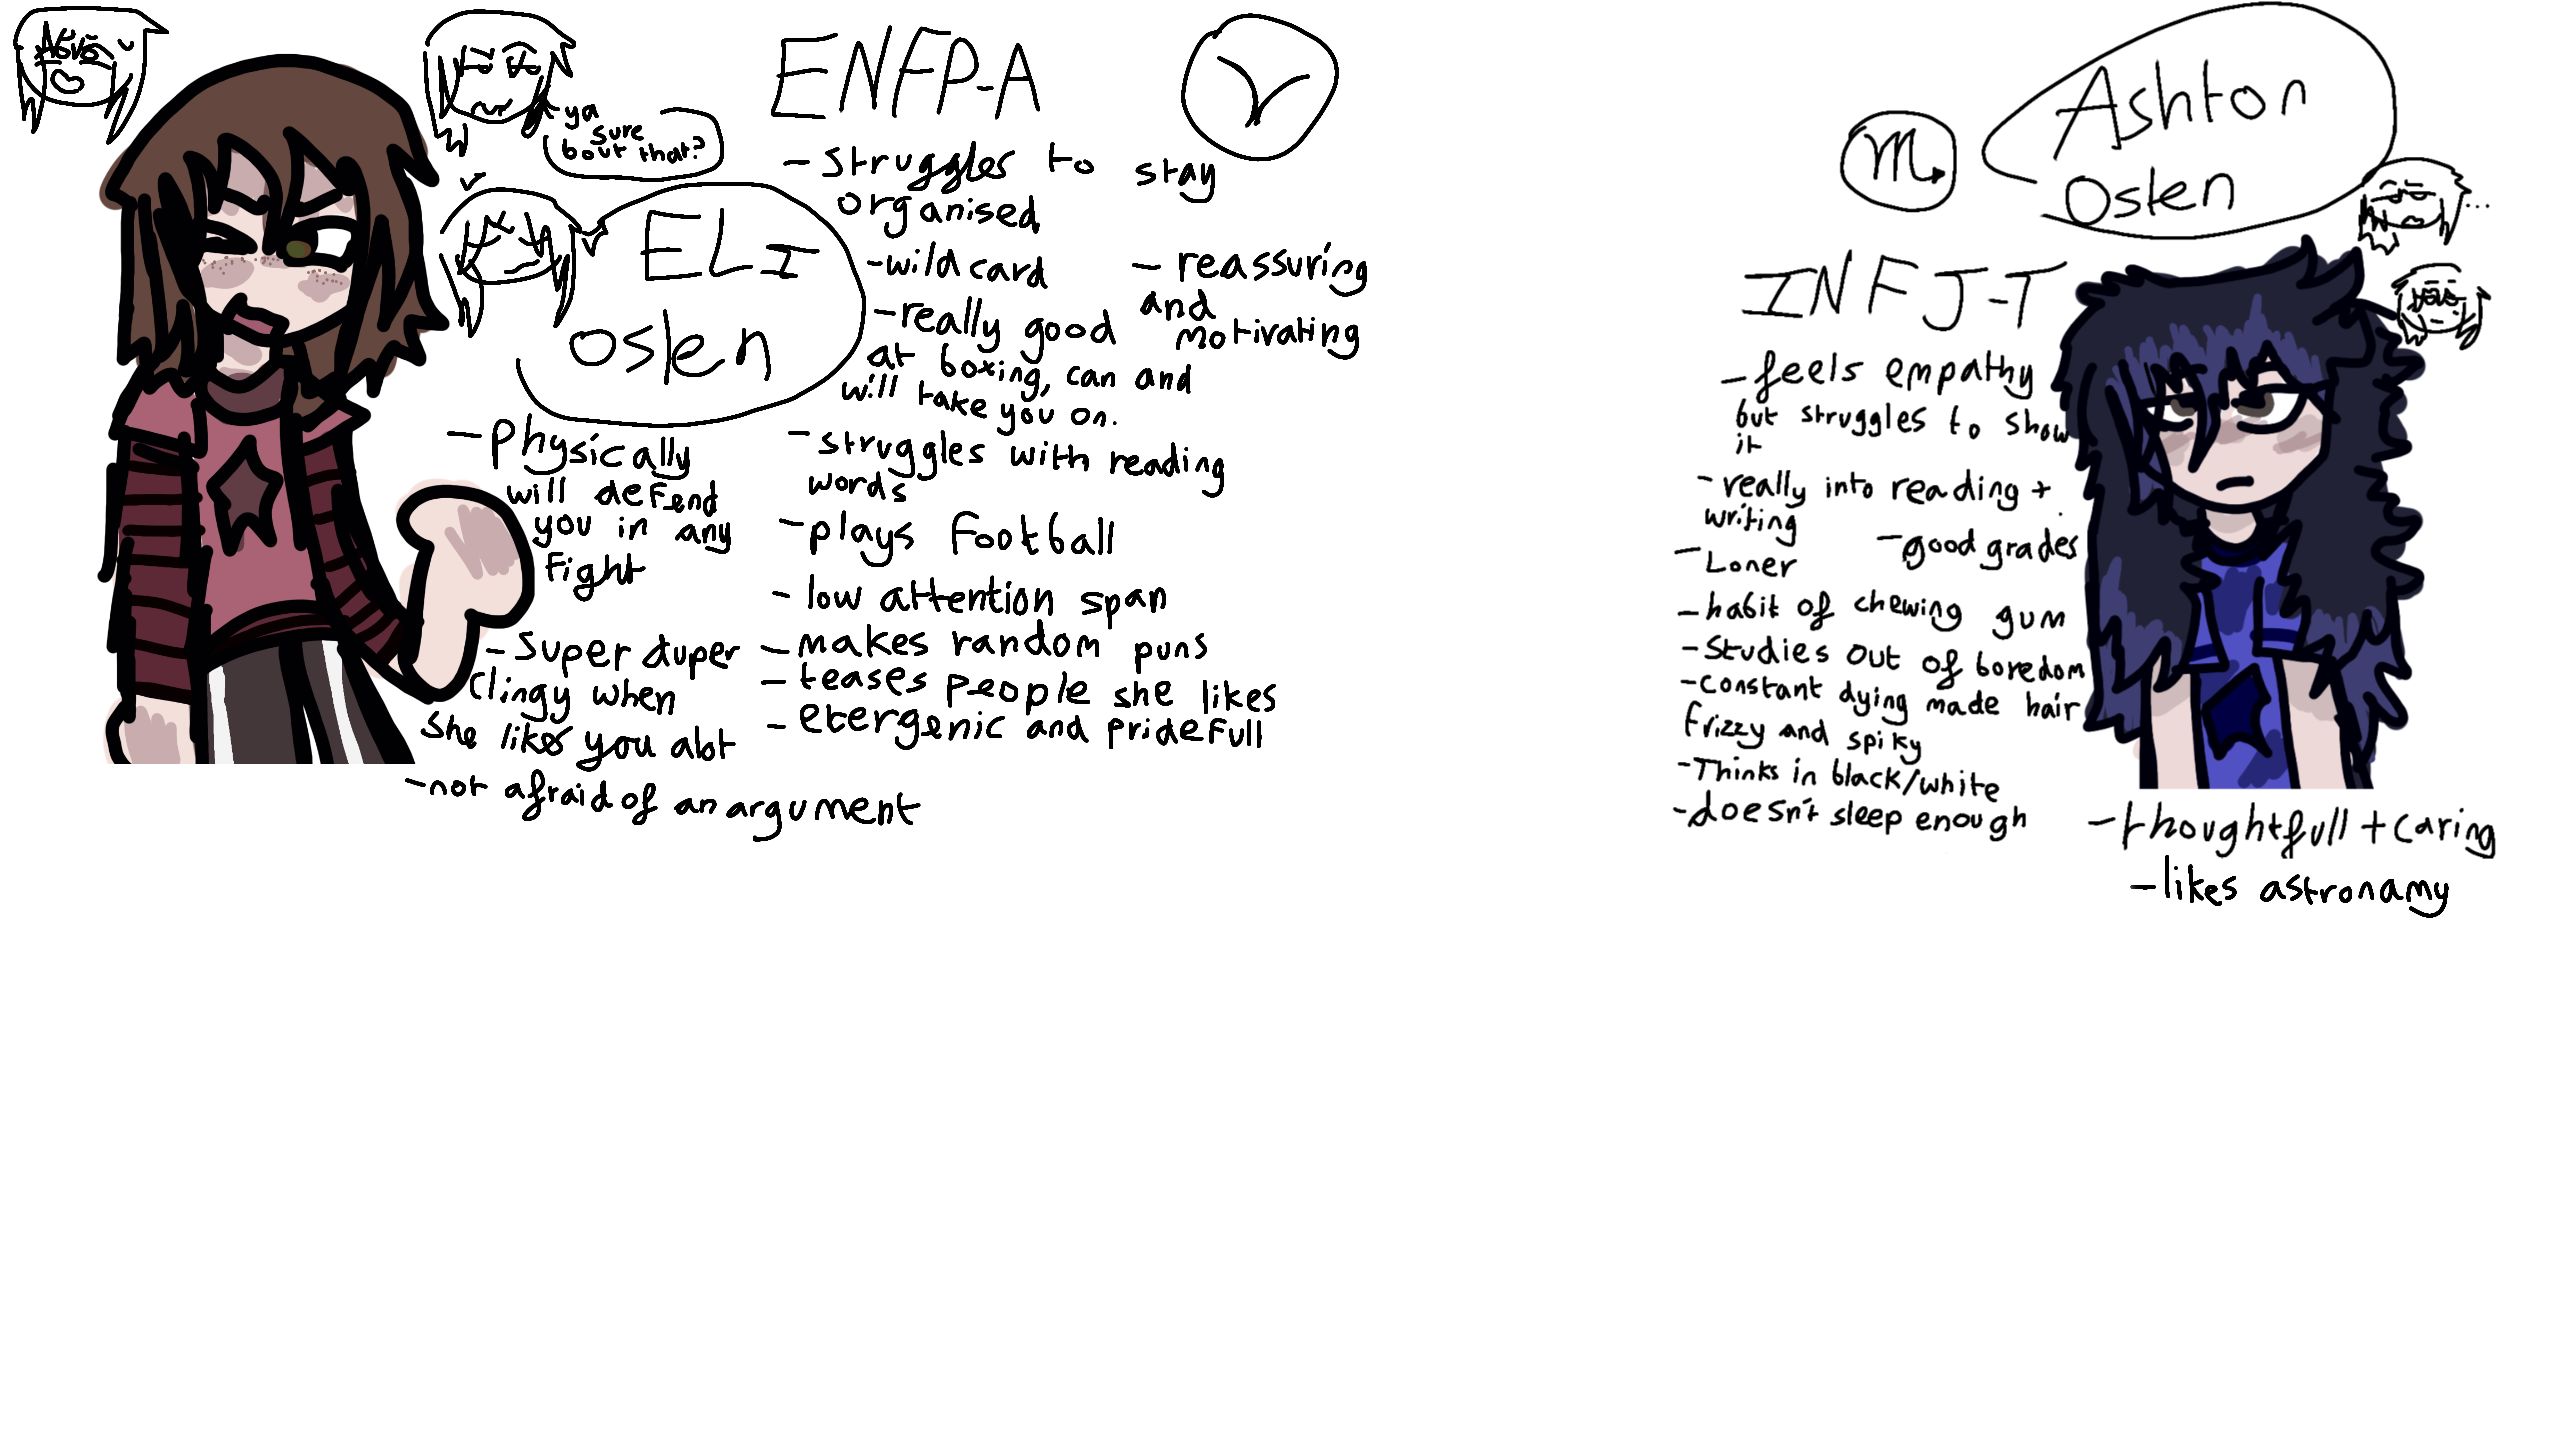 ya
sure
bout that?
ELI
oslen
ENFP-A
- struggles to stay
organised
- wild card
- really good
at boxing, can and
will take you on.
- reassuring
and
motivating
- Physically
will defend
you in any
fight
- struggles with reading
words
- plays football
- low attention span
- Super duper
clingy when
She likes you alot
- makes random puns
- teases people she likes
- etergenic and pridefull
- not afraid of an argument
Ashton
Oslen
INFJ-T
- feels empathy
but struggles to show
it
- really into reading +
writing
- Loner
- good grades
- habit of chewing gum
- Studies out of boredom
- constant dying made hair
frizzy and spiky
- Thinks in black/white
- doesn't sleep enough
- thoughtfull + caring
- likes astronamy
...